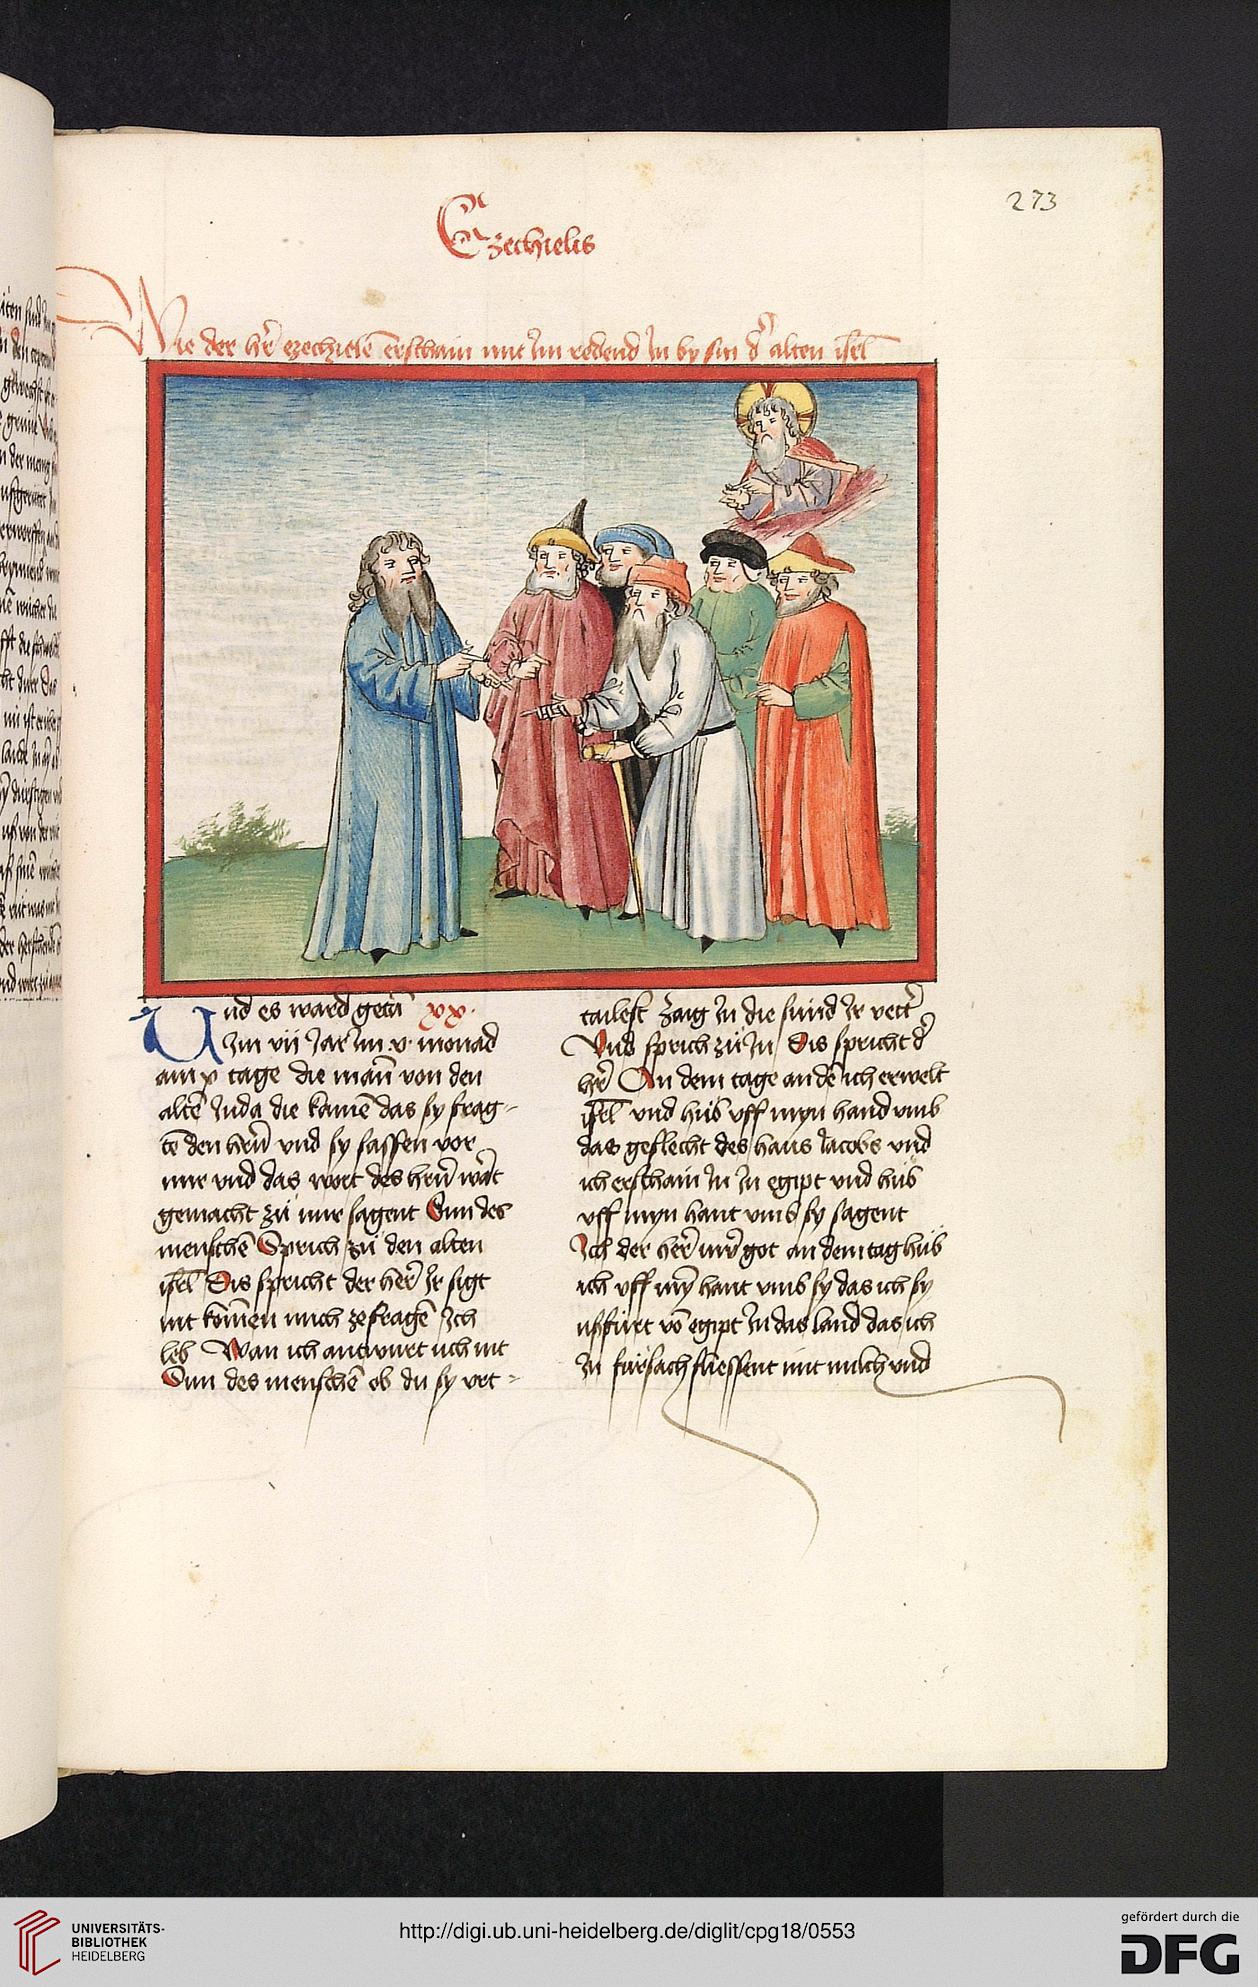 273
Ezechielis
Wie der hr̄ ezechielē erschain mit Im redend In by sin d' alten isr̄l
Und es ward getā xx.
Im vii Jar Im v. monad
am x tage die mān von den
altē Juda die kamē das sy frag-
tē den hrn̄ vnd sy sassen vor
mir vnd das wort des hrn̄ wār
gemacht zů mir sagent Sun des
menschē Sprich zů den alten
isr̄l Dis spricht der her̄ Ir sigt
nit kōmen mich zefragē Ich
leb Wan ich antwurt üch nit
Sun des menschē ob du sy vrt-
tailest Zaig In die sünd Ir vett'
Vnd sprich zů In Dis spricht d'
hr̄ An dem tage an dē ich erwelt
isr̄l vnd hůb vff myn hand vmb
das geslecht des haus Jacobs vnd
ich erschain In In egipt vnd hůb
vff myn hant vmb sy sagent
Ich der her̄ uwr̄ got an dem tag hůb
ich vff mȳ hant vmb sy das ich sy
vsfürt vō egipt In das land das ich
In fürsach fliessent mit milch vnd
UNIVERSITÄTS-
BIBLIOTHEK
HEIDELBERG
http://digi.ub.uni-heidelberg.de/diglit/cpg18/0553
gefördert durch die
DFG